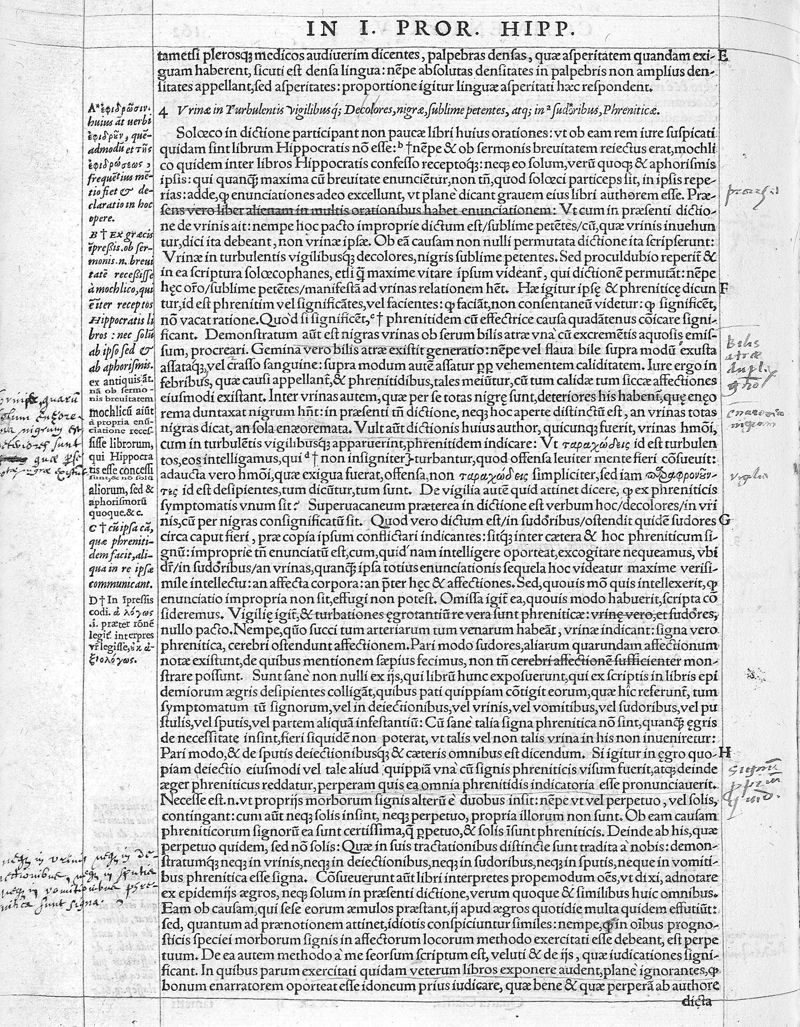 IN I. PROR. HIPP.
tametsi plerosq; medicos audiuerim dicentes, palpebras densas, quæ asperitatem quandam exi- E
guam haberent, sicuti est densa lingua: nẽpe absolutas densitates in palpebris non amplius den-
sitates appellant, sed asperitates: proportione igitur linguæ asperitati hæc respondent.
4 Vrinæ in Turbulentis vigilibusq; Decolores, nigræ, sublime petentes, atq; in ᵃ sudoribus, Phreniticæ.
Solœco in dictione participant non paucæ libri huius orationes: vt ob eam rem iure suspicati
quidam sint librum Hippocratis nõ esse: ᵇ † nẽpe & ob sermonis breuitatem reiectus erat, mochli
co quidem inter libros Hippocratis confesso receptoq;: neq; eo solum, verũ quoq; & aphorismis
ipsis: qui quanq̃ maxima cũ breuitate enuncientur, non tñ, quod solœci particeps sit, in ipsis repe-
rias: adde, ꝙ enunciationes adeo excellunt, vt planè dicant grauem eius libri authorem esse. Præ-
sens vero liber alienam in multis orationibus habet enunciationem: Vt cum in præsenti dictio-
ne de vrinis ait: nempe hoc pacto improprie dictum est/sublime petẽtes/cũ, quæ vrinis inuehun
tur, dici ita debeant, non vrinæ ipsæ. Ob eã causam non nulli permutata dictione ita scripserunt:
Vrinæ in turbulentis vigilibusq; decolores, nigris sublime petentes. Sed proculdubio reperit &
in ea scriptura solœcophanes, etsi q̃ maxime vitare ipsum videant, qui dictionẽ permutãt: nẽpe
hęc orõ/sublime petẽtes/manifestã ad vrinas relationem hẽt. Hæ igitur ipsę & phreniticę dicun F
tur, id est phrenitim vel significãtes, vel facientes: ꝙ faciãt, non consentaneũ videtur: ꝙ significẽt,
nõ vacat ratione. Quod si significẽt, ᶜ † phrenitidem cũ effectrice causa quadãtenus cõicare signi-
ficant. Demonstratum aũt est nigras vrinas ob serum bilis atræ vna cũ excremẽtis aquosis emis-
sum, procreari. Gemina vero bilis atræ existit generatio: nẽpe vel flaua bile supra modũ exusta
assataq;, vel crasso sanguine: supra modum autẽ assatur ꝓp vehementem caliditatem. Iure ergo in
febribus, quæ causi appellant, & phrenitidibus, tales meiũtur, cũ tum calidæ tum siccæ affectiones
eiusmodi existant. Inter vrinas autem, quæ per se totas nigrę sunt, deteriores his habeñt, quę enęo
rema duntaxat nigrum hñt: in præsenti tñ dictione, neq; hoc aperte distinctũ est, an vrinas totas
nigras dicat, an sola enæoremata. Vult aũt dictionis huius author, quicunq; fuerit, vrinas hmõi,
cum in turbulẽtis vigilibusq; apparuerint, phrenitidem indicare: Vt ταραχώδεις id est turbulen
tos, eos intelligamus, qui ᵈ † non insigniter turbantur, quod offensa leuiter mente fieri cõsueuit:
adaucta vero hmõi, quæ exigua fuerat, offensa, non ταραχώδεις simpliciter, sed iam παραφρονοῦν-
τες id est desipientes, tum dicũtur, tum sunt. De vigilia autẽ quid attinet dicere, ꝙ ex phreniticis
symptomatis vnum sit? Superuacaneum præterea in dictione est verbum hoc/decolores/in vri
nis, cũ per nigras consignificatũ sit. Quod vero dictum est/in sudoribus/ostendit quidẽ sudores G
circa caput fieri, præ copia ipsum conflictari indicantes: sitq; inter cætera & hoc phreniticum si-
gnũ: improprie tñ enunciatũ est, cum, quid nam intelligere oporteat, excogitare nequeamus, vbi
dr̃/in sudoribus/an vrinas, quanq̃ ipsa totius enunciationis sequela hoc videatur maxime verisi-
mile intellectu: an affecta corpora: an p̃ter hęc & affectiones. Sed, quouis mõ quis intellexerit, ꝙ
enunciatio impropria non sit, effugi non potest. Omissa igit ea, quouis modo habuerit, scripta cõ
sideremus. Vigilię igit, & turbationes ęgrotantiũ re vera sunt phreniticæ: vrinę vero, et sudores,
nullo pacto. Nempe, quõ succi tum arteriarum tum venarum habeãt, vrinæ indicant: signa vero
phrenitica, cerebri ostendunt affectionem. Pari modo sudores, aliarum quarundam affectionum
notæ existunt, de quibus mentionem sæpius fecimus, non tñ cerebri affectionẽ sufficienter mon-
strare possunt. Sunt sanè non nulli ex ijs, qui librũ hunc exposuerunt, qui ex scriptis in libris epi
demiorum ægris desipientes colligãt, quibus pati quippiam cõtigit eorum, quæ hîc referunt, tum
symptomatum tũ signorum, vel in deiectionibus, vel vrinis, vel vomitibus, vel sudoribus, vel pu
stulis, vel sputis, vel partem aliquã infestantiũ: Cũ sanè talia signa phrenitica nõ sint, quanq̃ ęgris
de necessitate insint, fieri siquidẽ non poterat, vt talis vel non talis vrina in his non inueniretur:
Pari modo, & de sputis deiectionibusq; & cæteris omnibus est dicendum. Si igitur in ęgro quo- H
piam deiectio eiusmodi vel tale aliud quippiã vna cũ signis phreniticis visum fuerit, atq; deinde
æger phreniticus reddatur, perperam quis ea omnia phrenitidis indicatoria esse pronunciauerit.
Necesse est.n. vt proprijs morborum signis alterũ è duobus insit: nẽpe vt vel perpetuo, vel solis,
contingant: cum aũt neq; solis insint, neq; perpetuo, propria illorum non sunt. Ob eam causam
phreniticorum signorũ ea sunt certissima, q̃ ꝑpetuo, & solis ĩsunt phreniticis. Deinde ab his, quæ
perpetuo quidem, sed nõ solis: Quæ in suis tractationibus distincte sunt tradita à nobis: demon-
stratumq; neq; in vrinis, neq; in deiectionibus, neq; in sudoribus, neq; in sputis, neque in vomiti-
bus phrenitica esse signa. Cõsueuerunt aũt libri interpretes propemodum oẽs, vt dixi, adnotare
ex epidemijs ægros, neq; solum in præsenti dictione, verum quoque & similibus huic omnibus.
Eam ob causam, qui sese eorum æmulos præstant, ij apud ægros quotidie multa quidem effutiũt:
sed, quantum ad prænotionem attinet, idiotis conspiciuntur similes: nempe, ꝙ in oĩbus progno-
sticis speciei morborum signis in affectorum locorum methodo exercitati esse debeant, est perpe
tuum. De ea autem methodo à me seorsum scriptum est, veluti & de ijs, quæ iudicationes signi-
ficant. In quibus parum exercitati quidam veterum libros exponere audent, planè ignorantes, ꝙ
bonum enarratorem oporteat esse idoneum prius iudicare, quæ bene & quæ perperã ab authore
dicta
A * ἐφιδρῶσιν.
huius át uerbi
ἐφιδροῦν, quẽ-
admodũ et τῆς
ἐφιδρώσεως,
frequẽtius mẽ-
tio fiet & de-
claratio in hoc
opere.
B † Ex græcis
ĩpressis. ob ser-
monis.n. breui
tatẽ recessisse
à mochlico, qui
ẽiter receptos
Hippocratis li
bros: nec solũ
ab ipso sed &
ab aphorismis.
ex antiquis át.
nã ob sermo-
nis breuitatem
mochlicũ aiũt
à propria enũ-
ciatione reces-
sisse librorum,
qui Hippocra
tis esse concessi
sunt, & nõ solũ
aliorum, sed &
aphorismorũ
quoque. &c.
C † cũ ipsa cã,
quæ phreniti-
dem facit, ali-
qua in re ipsæ
communicant.
D † In ĩpressis
codi. ἀλόγως
.i. præter rõnẽ
legit̃. interpres
vr̃ legisse, οὐκ ἀ-
ξιολόγως.
Bilis
atræ
dupl.
vigilia
signũ
neq; in vrinis neq; in de-
iectionibus, neq; in sputis
neq; in vomitibus phre-
nitica sunt signa.